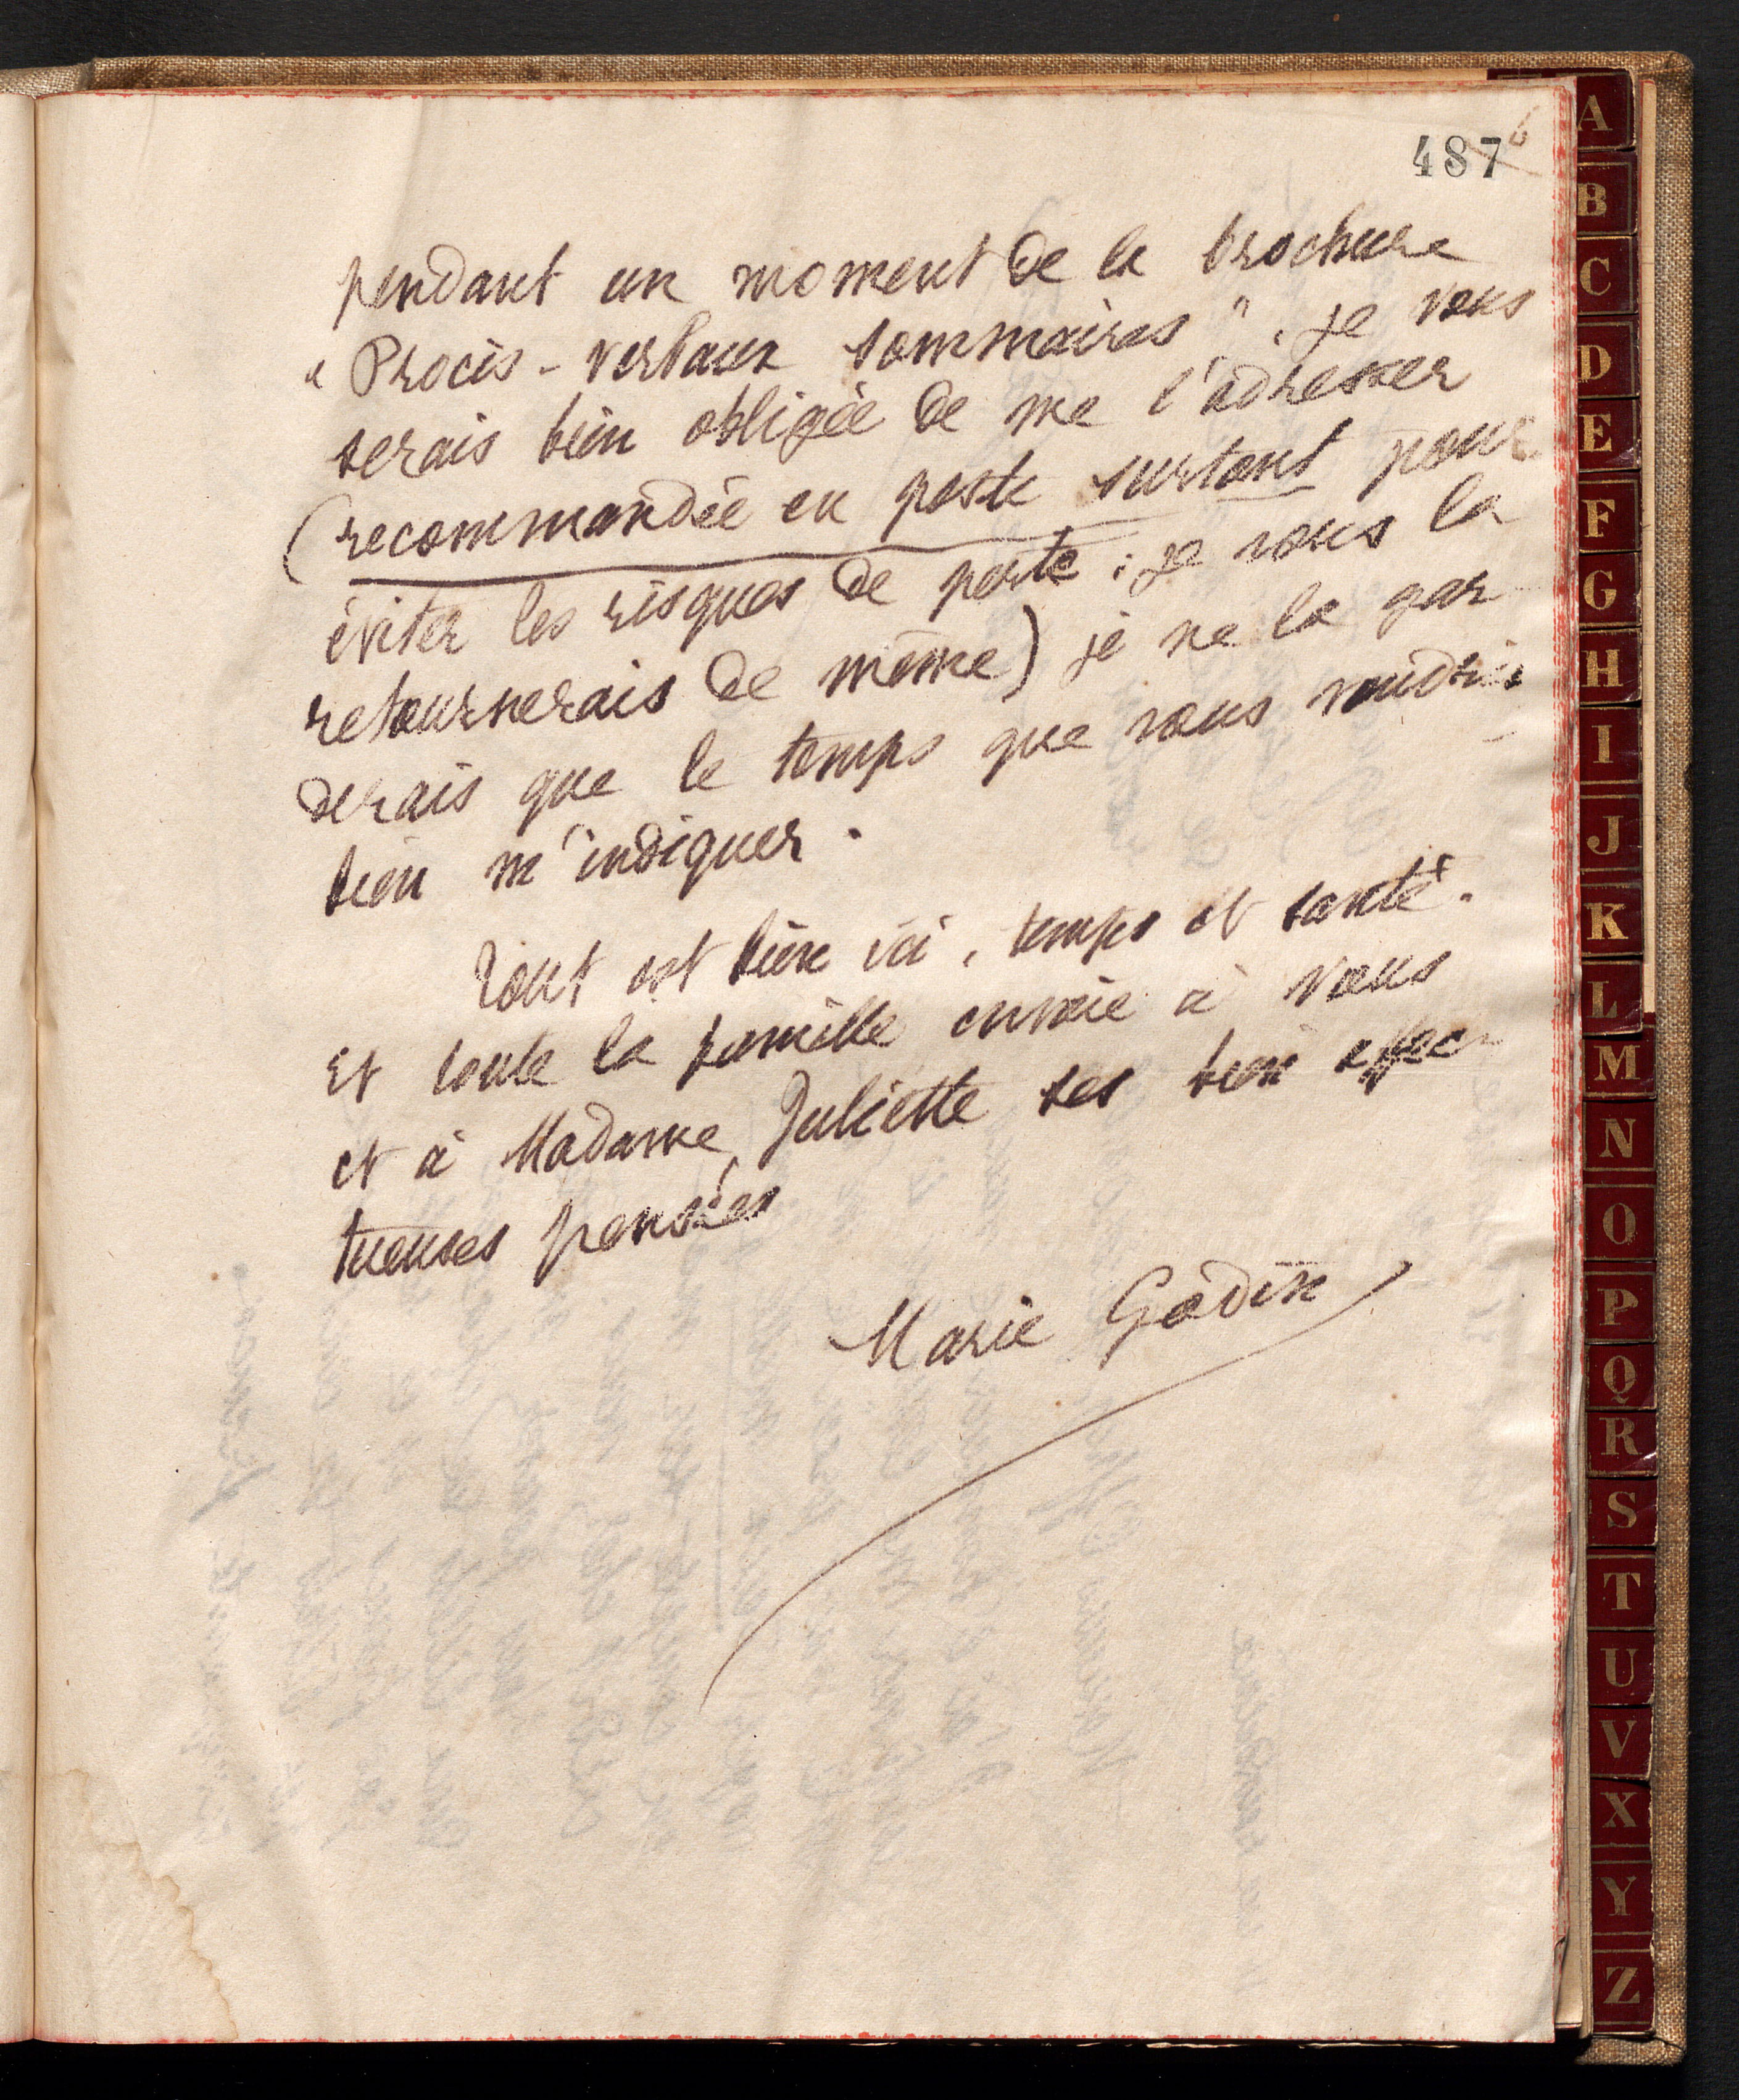 487 6
pendant un moment de la brochure
« Procès-verbaux sommaires ", je vous
serais bien obligée de me l'adresser
(recommandée en poste surtout pour
éviter les risques de perte ; je vous la
retournerais de même) je ne la gar
derais que le temps que vous voudriez
bien m'indiquer.
Tout est bien ici, temps et santé.
Et toute la famille envoie à vous
et à Madame Juliette ses bien affec
tueuses pensées
Marie Godin
A
B
C
D
E
F
G
H
I
J
K
L
M
N
O
P
Q
R
S
T
U
V
X
Y
Z